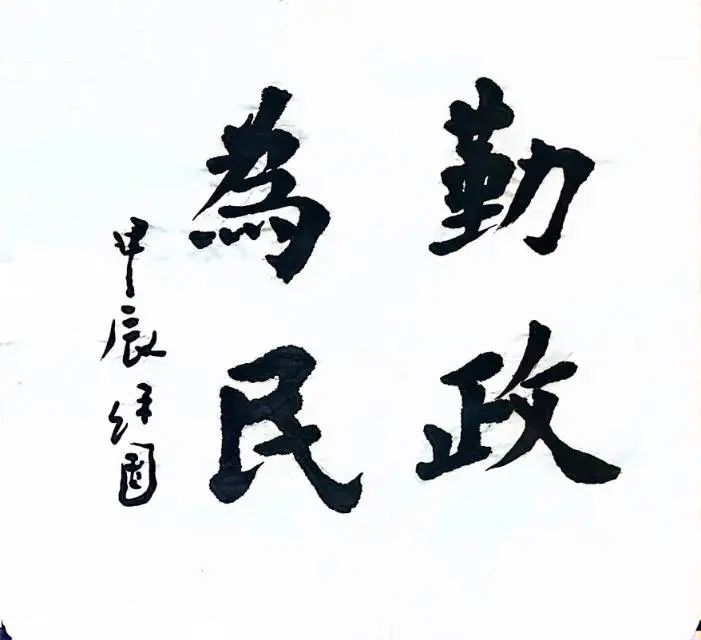 勤政
為民
甲辰